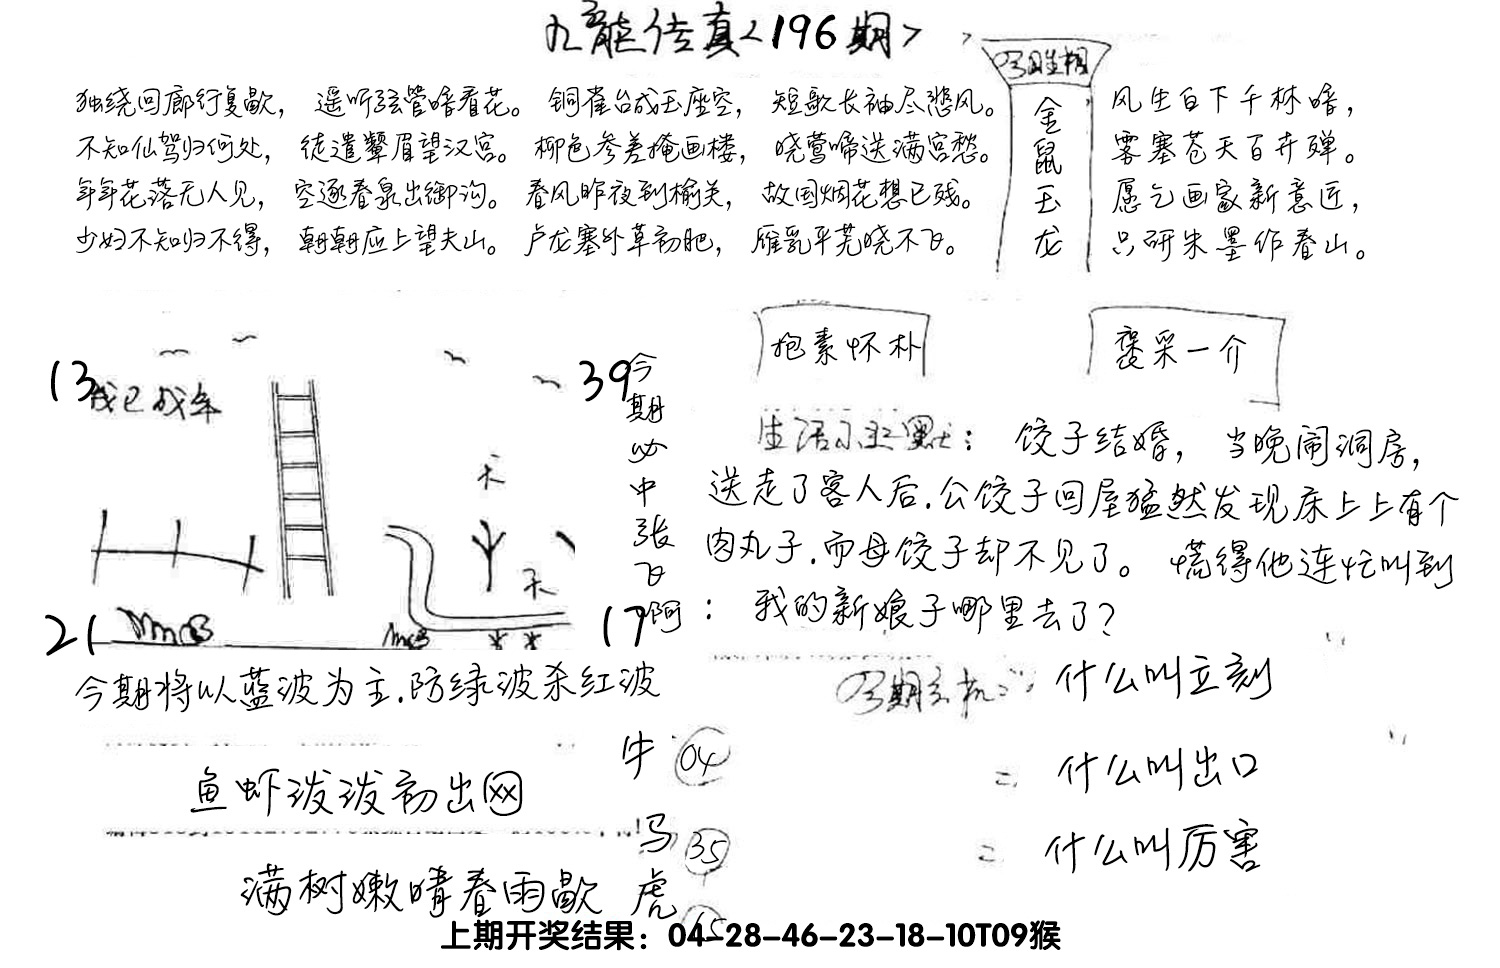 九龙传真<196期>
独绕回廊行复歇，遥听弦管暗看花。铜雀台成玉座空，短歌长袖尽悲风。
不知仙驾归何处，徒遣颦眉望汉宫。柳色参差掩画楼，晓莺啼送满宫愁。
年年花落无人见，空逐春泉出御沟。春风昨夜到榆关，故国烟花想已残。
少妇不知归不得，朝朝应上望夫山。卢龙塞外草初肥，雁乳平芜晓不飞。
今期生相
金鼠玉龙
风生白下千林暗，
雾塞苍天百卉殚。
愿乞画家新意匠，
只研朱墨作春山。
抱素怀朴
褒采一介
13
39
我已成年
天
天
21
17
今期必中张飞啊
生活小幽默：饺子结婚，当晚闹洞房，
送走了客人后.公饺子回屋猛然发现床上上有个
肉丸子.而母饺子却不见了。慌得他连忙叫到
：我的新娘子哪里去了？
今期将以蓝波为主.防绿波杀红波
今期玄机：什么叫立刻
二 什么叫出口
二 什么叫厉害
鱼虾泼泼初出网
满树嫩晴春雨歇
牛 04
马 35
虎 15
上期开奖结果：04-28-46-23-18-10T09猴